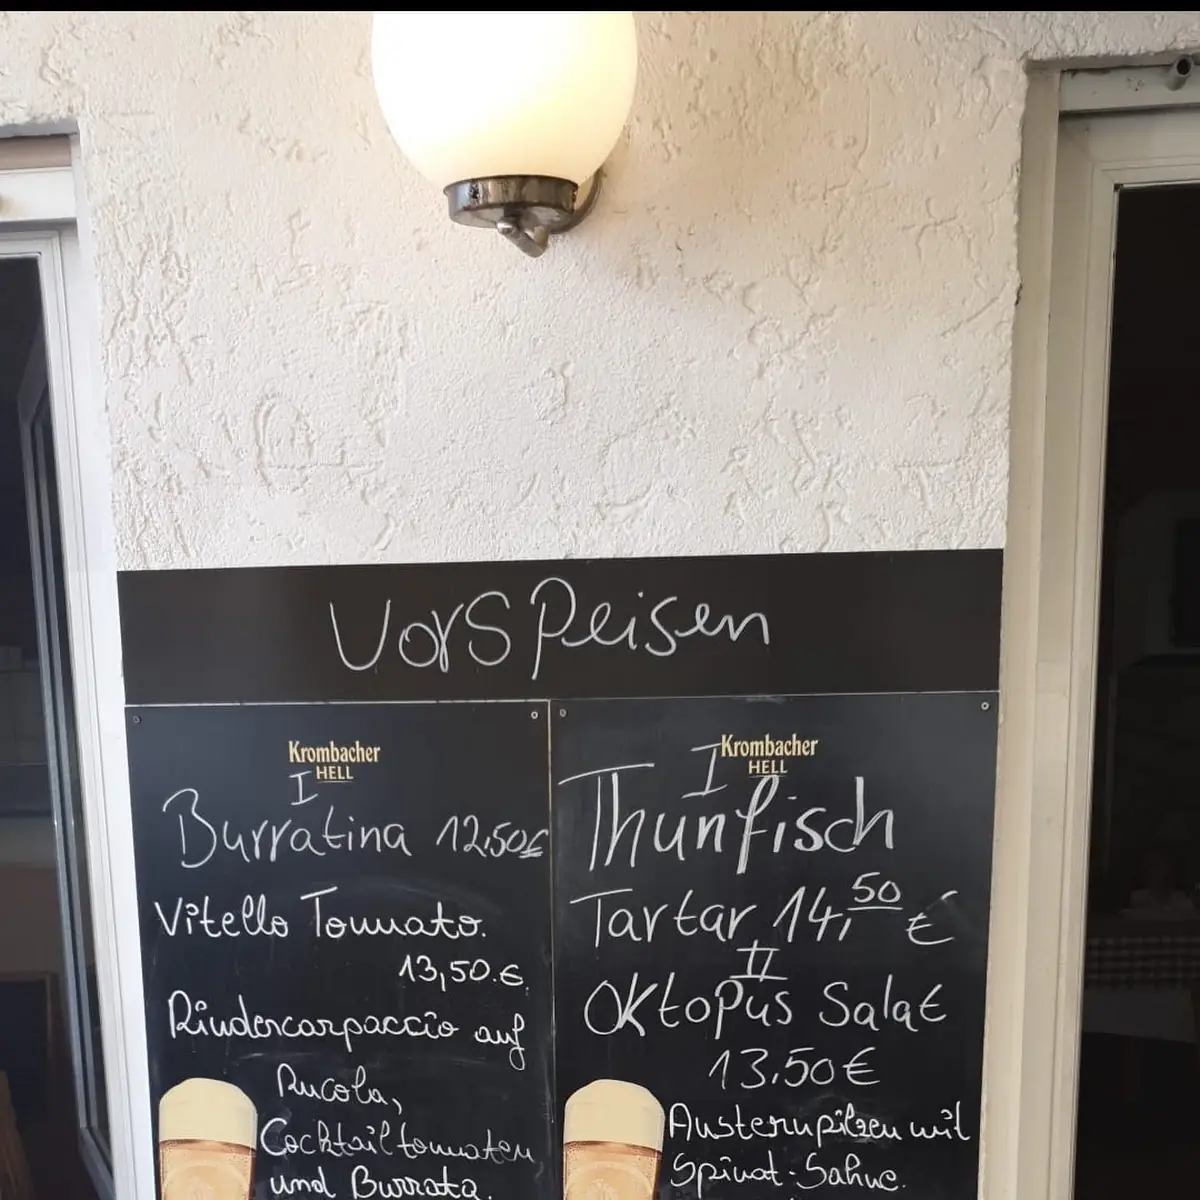 Vorspeisen
Krombacher
HELL
I
Burratina 12,50€
Vitello Tonnato.
13,50.€
Rindercarpaccio auf
Rucola,
Cocktailtomaten
und Burrata.
Krombacher
HELL
I
Thunfisch
Tartar 14,50 €
II
Oktopus Salat
13.50€
Austernpilzen mit
Spinat-Sahne.